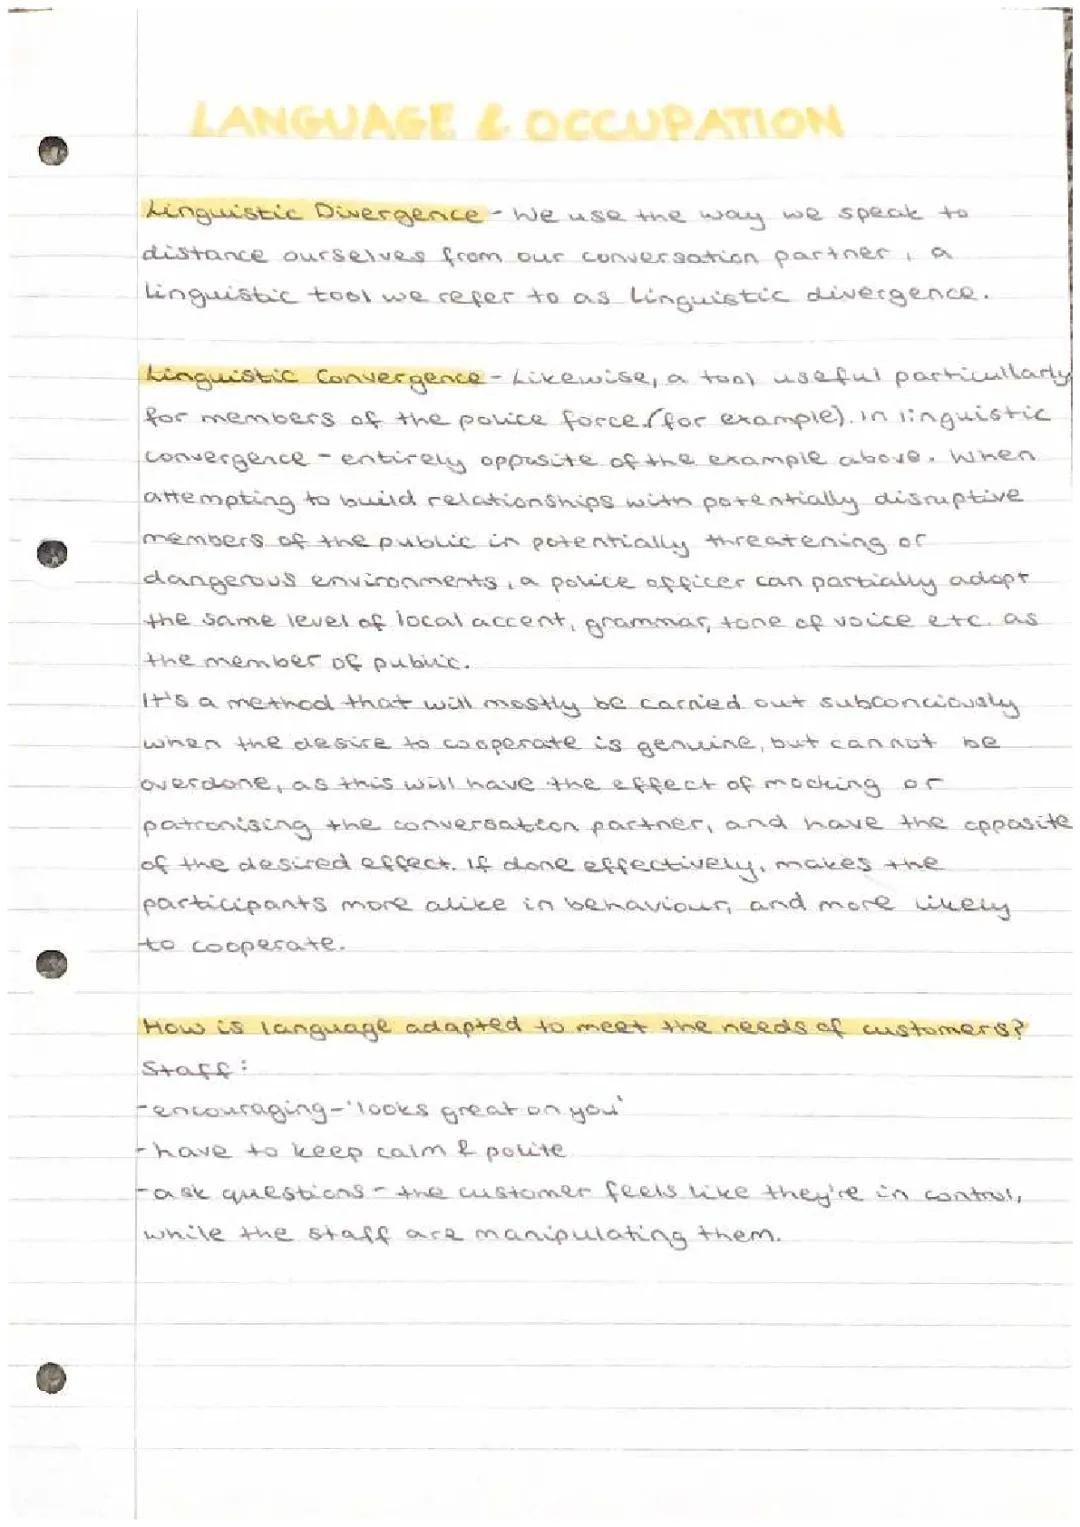 LANGUAGE & OCCUPATION
Linguistic Divergence - We use the way we speak to
distance ourselves from our conversation partner, a
linguistic tool we refer to as linguistic divergence.
Linguistic Convergence - Likewise, a tool useful particullarly
for members of the police force (for example). in linguistic
convergence - entirely opposite of the example above. When
attempting to build relationships with potentially disruptive
members of the public in potentially threatening or
dangerous environments, a police officer can partially adopt
the same level of local accent, grammar, tone of voice etc. as
the member of public.
It's a method that will mostly be carried out subconciously
when the desire to cooperate is genuine, but cannot be
overdone, as this will have the effect of mocking or
patronising the conversation partner, and have the opposite
of the desired effect. If done effectively, makes the
participants more alike in behaviour, and more likely
to cooperate.
How is language adapted to meet the needs of customers?
Staff:
-encouraging-'looks great on you'
-have to keep calm & polite
-ask questions - the customer feels like they're in control,
while the staff are manipulating them.